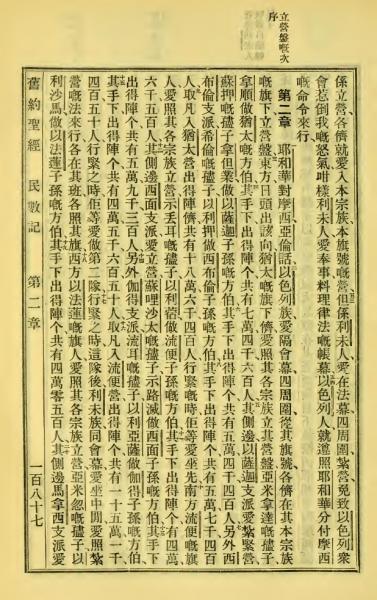 立營盤嘅次
序
係立營各儕就愛入本宗族本旗號嘅營但係利未人愛在法幕四周圍紮營免致以色列衆
會惹倒我嘅怒氣咁樣利未人愛奉事料理律法嘅帳幕以色列人就遵照耶和華分付摩西
嘅命令來行
第二章 耶和華對摩西亞倫話以色列族愛隔會幕四周圍從其旗號各儕在其本宗族
嘅旗下立營盤東方日頭出該向猶太嘅旗下儕愛照其各宗族立其營盤亞米拿達嘅孻子
拿順做猶太子孫嘅方伯其手下出得陣个共有七萬四千六百人其側邊以薩迦支派愛紮緊營
蘇押嘅孻子拿但業做以薩迦子孫嘅方伯其手下出得陣个共有五萬四千四百人另外西
布倫支派希倫嘅孻子以利押做西布倫子孫嘅方伯其手下出得陣个共有五萬七千四百
人取凡入猶太營出得陣儕共有十八萬六千四百人行緊嘅時佢等愛坐先南方流便嘅旗
人愛照其各宗族立營示丟耳嘅孻子以利蓿做流便子孫嘅方伯其手下出得陣个有四萬
六千五百人其側邊西面支派愛立營蘇哩沙太嘅孻子示路滅做西面子孫嘅方伯其手下
出得陣个共有五萬九千三百人另外伽得支派流耳嘅孻子以利亞薩做伽得子孫嘅方伯
其手下出得陣个共有四萬五千六百五十人取凡入流便營出得陣个共有一十五萬一千
四百五十人行緊之時佢等愛做第二隊行緊之時這隊後利未族同會幕愛坐中間愛照紮
營嘅法來行各在其班各照其旗西方以法蓮嘅旗人愛照其各宗族立營亞米忽嘅孻子以
利沙馬做以法蓮子孫嘅方伯其手下出得陣个共有四萬零五百人其側邊馬拿西支派愛
舊約聖經 民數記 第二章 一百八十七